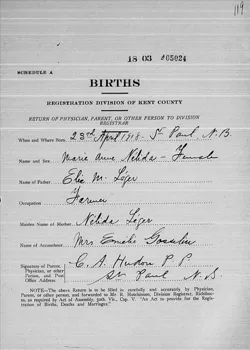 119
18 03 #05024
SCHEDULE A
BIRTHS
REGISTRATION DIVISION OF KENT COUNTY
RETURN OF PHYSICIAN, PARENT, OR OTHER PERSON TO DIVISION
REGISTRAR
When and Where Born, 23rd April 1918 - St Paul, N.B.
Name and Sex, Marie Anne Nelida - Female
Name of Father, Elie M. Léger
Occupation Farmer
Maiden Name of Mother, Nelida Léger
Name of Accoucheur Mrs Emelie
Signature of Parent, Physician, or other Person, and Post Office Address C. A. Hudon P.P.
St Paul N.B.
NOTE—The above Return is to be filled in carefully and accurately by Physician,
Parent, or other person, and forwarded to Mr. R. Hutchinson, Division Registrar, Richibucto,
as required by Act of Assembly, Vic., Cap. V. "An Act to provide for the Registration
of Births, Deaths and Marriages."